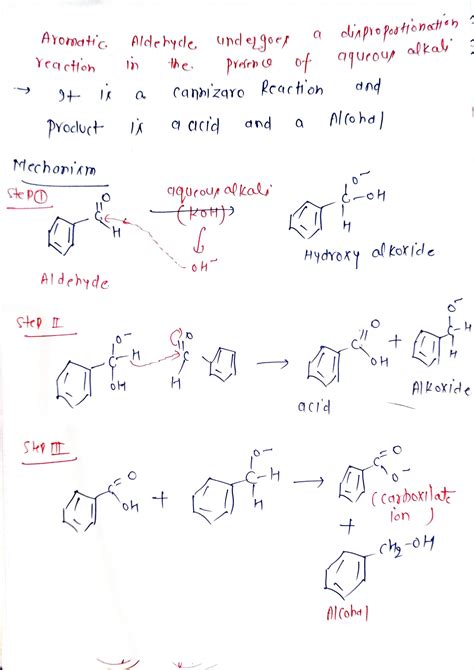 Aromatic Aldehyde undergoes a disproportionation
reaction in the presence of aqueous alkali
→ It is a cannizaro Reaction and
product is a acid and a Alcohal
Mechanism
Step ①
O
C
H
Aldehyde
aqueous alkali
(KOH)
OH⁻
O⁻
C-OH
H
Hydroxy alkoxide
Step II
O⁻
C-H
OH
O
C
H
→
O
C
OH
acid
+
O⁻
C-H
H
Alkoxide
Step III
C=O
OH
+
O⁻
C-H
H
→
C=O
O⁻
(carboxilate
ion)
+
CH₂-OH
Alcohal